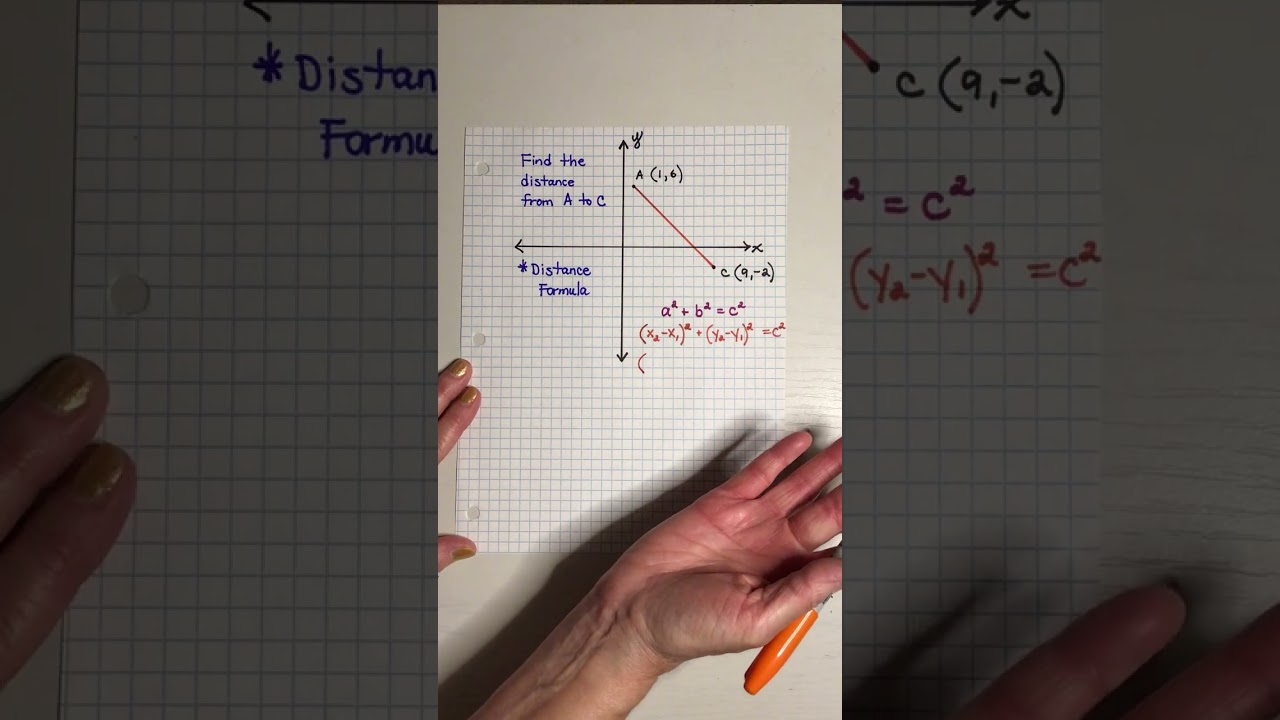 y
Find the
distance
from A to C
A (1,6)
x
* Distance
Formula
C (9,-2)
a² + b² = c²
(x₂-x₁)² + (y₂-y₁)² = c²
(